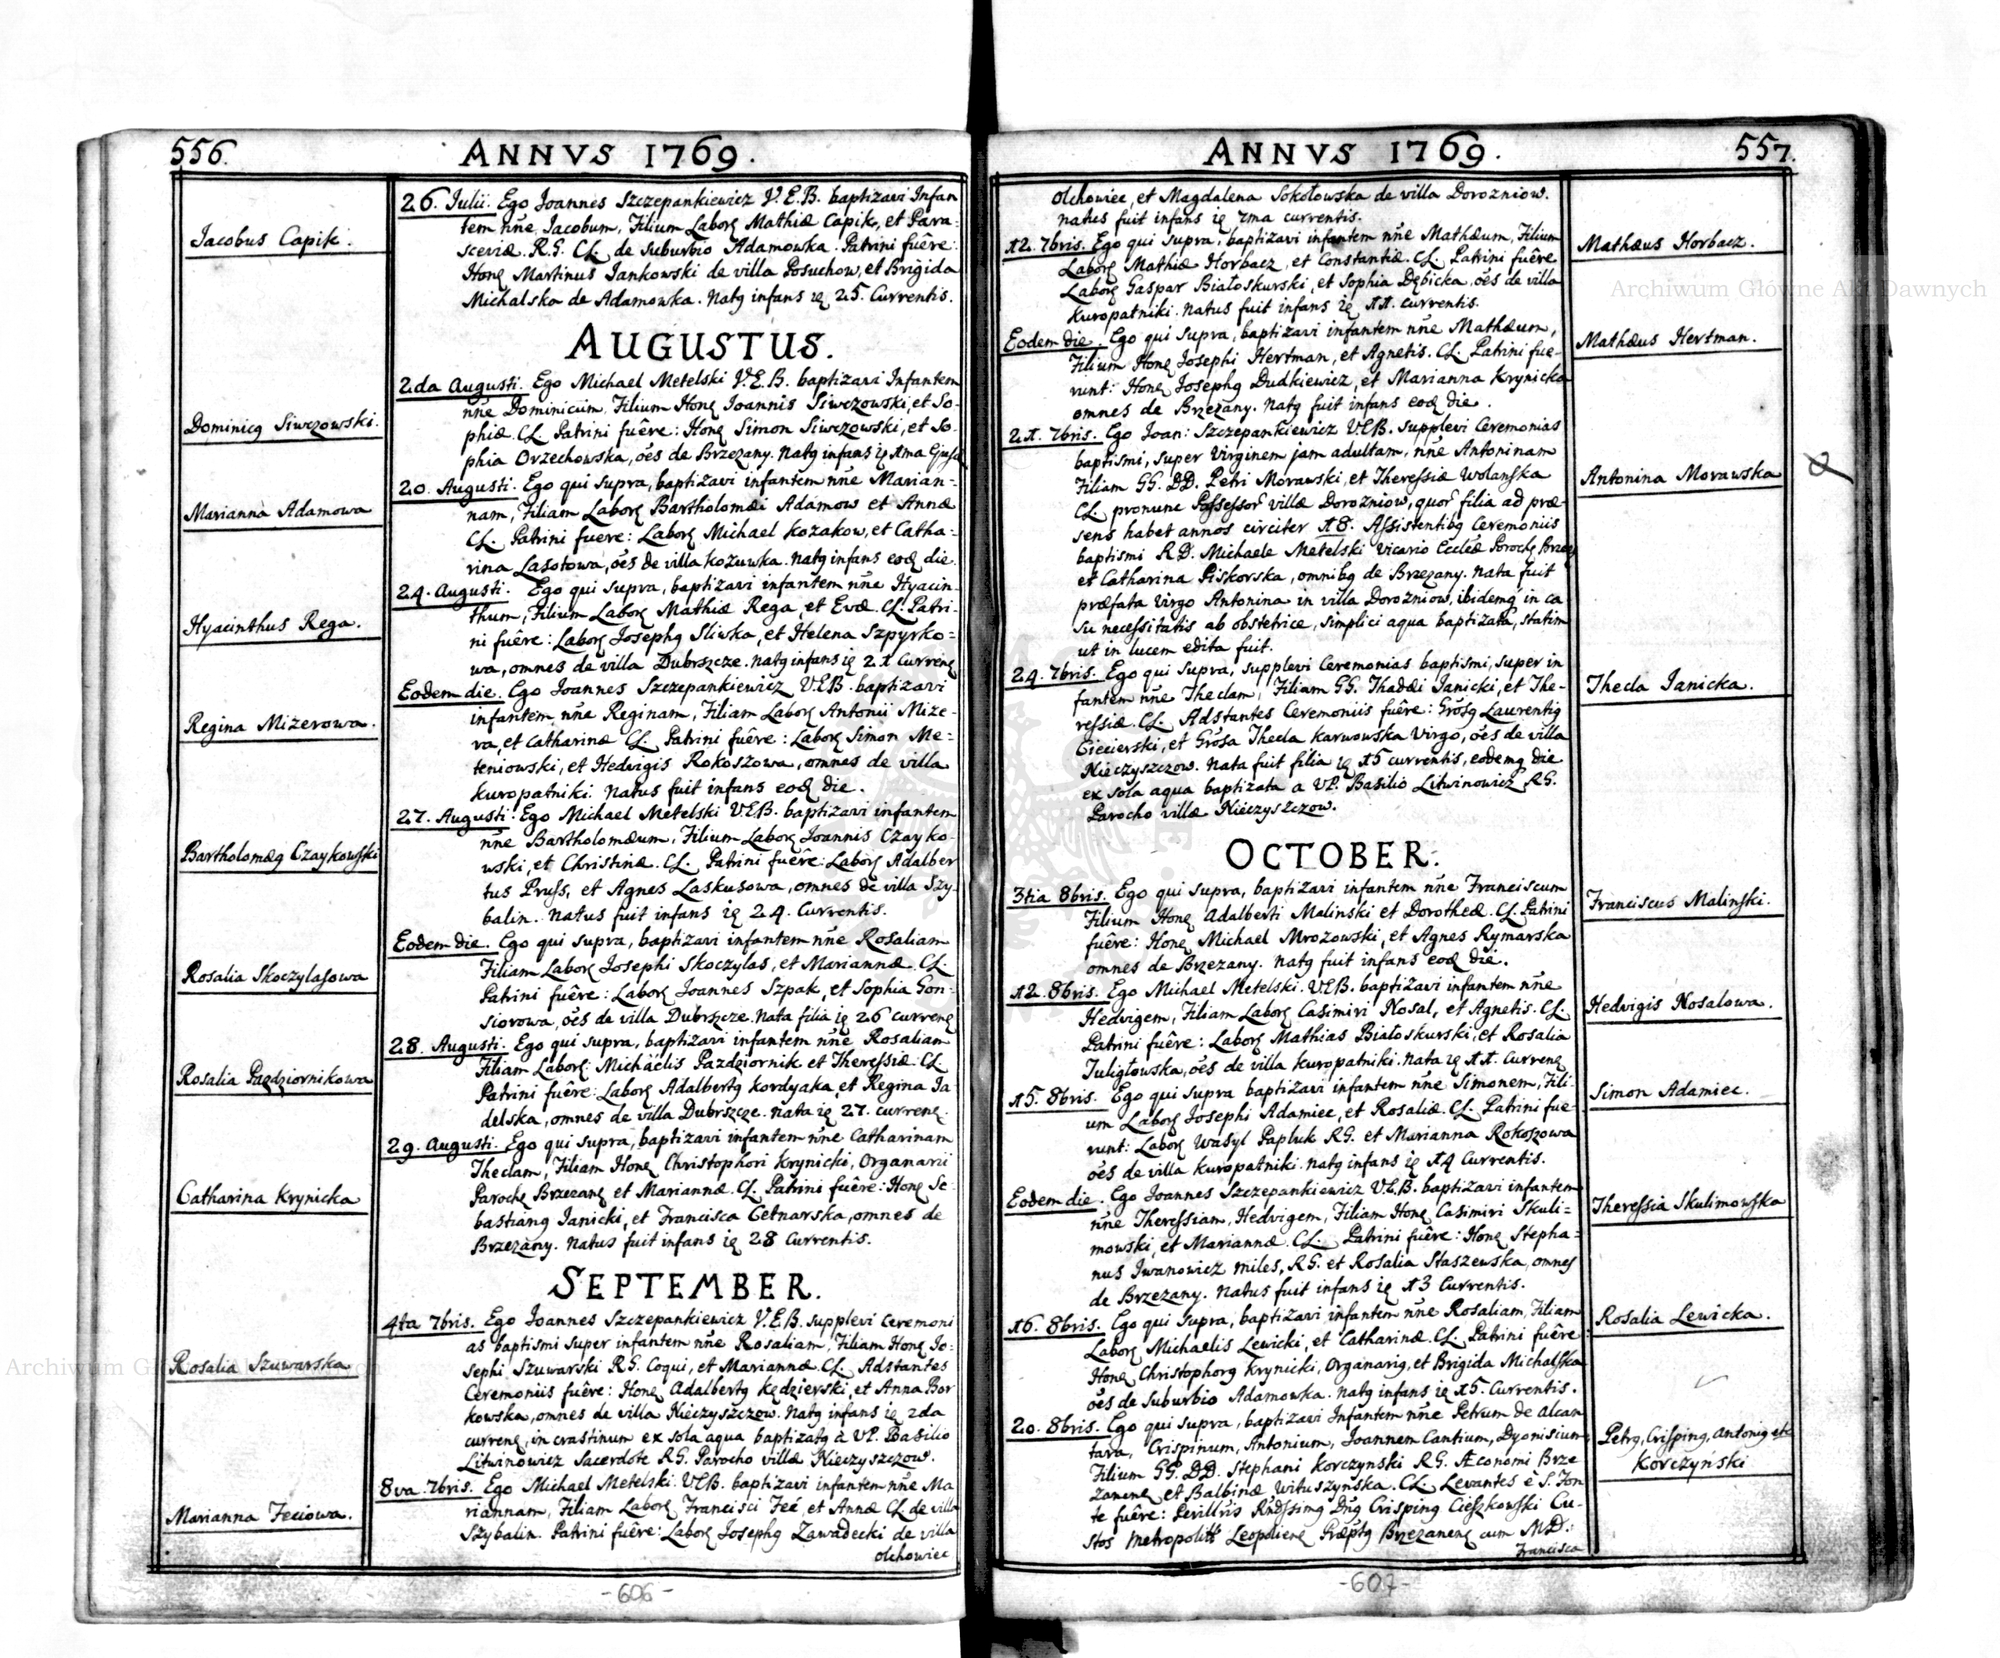 556.
ANNVS 1769.
Jacobus Capik.
26. Julii. Ego Joannes Szczepankiewicz V.E.B. baptizavi Infan
tem nñe Jacobum, Filium Laborę Mathiæ Capik, et Para-
sceviæ. R.G. CL. de Suburbio Adamowka. Patrini fuêre:
Honę Martinus Jankowski de villa Posuchow, et Brigida
Michalska de Adamowka. Natg infans ię 25. Currentis.
AUGUSTUS.
Dominicg Siwczowski.
2da Augusti. Ego Michael Metelski V.E.B. baptizavi Infantem
nñe Dominicum, Filium Honę Joannis Siwczowski, et So-
phiæ. CL. Patrini fuêre: Honę Simon Siwczowski, et So-
phia Orzechowska, oẽs de Brzezany. Natg infans ię 1ma
Marianna Adamowa
20. Augusti. Ego qui supra, baptizavi infantem nñe Marian-
nam, Filiam Laborę Bartholomæi Adamow et Annæ
CL. Patrini fuere: Laborę Michael Kozakow, et Catha-
rina Lasotowa, oẽs de villa Kozuwka. Natg infans eod die.
Hyacinthus Rega.
24. Augusti. Ego qui supra, baptizavi infantem nñe Hyacin-
thum, Filium Laborę Mathiæ Rega et Evæ. CL. Patri-
ni fuêre: Laborę Josephg Sliwka, et Helena Szpyrko=
wa, omnes de villa Dubrszcze. Natg infans ię 21 Currenę
Regina Mizerowa.
Eodem die. Ego Joannes Szczepankiewicz V.E.B. baptizavi
infantem nñe Reginam, Filiam Laborę Antonii Mize-
ra, et Catharinæ CL. Patrini fuêre: Laborę Simon Me-
teniowski, et Hedvigis Rokoszowa, omnes de villa
Kuropatniki. Natus fuit infans eod die.
Bartholomæg Czaykowski
27. Augusti. Ego Michael Metelski V.E.B. baptizavi infantem
nñe Bartholomæum, Filium Laborę Joannis Czayko-
wski, et Christinæ. CL. Patrini fuêre: Laborę Adalber
tus Pruss, et Agnes Laskusowa, omnes de villa Szy-
balin. Natus fuit infans ię 24. Currentis.
Rosalia Skoczylasowa
Eodem die. Ego qui supra, baptizavi infantem nñe Rosaliam
Filiam Laborę Josephi Skoczylas, et Mariannæ. CL.
Patrini fuêre: Laborę Joannes Szpak, et Sophia Gon-
siorowa, oẽs de villa Dubrszcze. Nata filia ię 26 currenę
Rosalia Pazdziornikowa
28. Augusti. Ego qui supra, baptizavi infantem nñe Rosaliam
Filiam Laborę Michäelis Pazdziornik et Theressiæ. CL
Patrini fuêre: Laborę Adalbertg Kordyaka, et Regina Ja
delska, omnes de villa Dubrszcze. Nata ię 27. currenę.
Catharina Krynicka
29. Augusti. Ego qui supra, baptizavi infantem nñe Catharinam
Theclam, Filiam Honę Christophori Krynicki, Organarii
Parochę Brzezanę et Mariannæ. CL. Patrini fuêre: Honę Se-
bastiang Janicki, et Francisca Cetnarska, omnes de
Brzezany. Natus fuit infans ię 28 Currentis.
SEPTEMBER.
Rosalia Szuwarska
4ta 7bris. Ego Joannes Szczepankiewicz V.E.B. supplevi Ceremoni
as baptismi super infantem nñe Rosaliam, Filiam Honę Jo-
sephi Szuwarski R.G. Coqui, et Mariannæ CL. Adstantes
Ceremoniis fuêre: Honę Adalbertg Kędzierski, et Anna Bor
kowska, omnes de villa Nieczyszczow. Natg infans ię 2da
currenę, in crastinum ex sola aqua baptizatg à VP. Basilio
Litwinowicz Sacerdote R.G. Parocho villæ Nieczyszczow.
Marianna Feciowa.
8va. 7bris. Ego Michael Metelski. V.E.B. baptizavi infantem nñe Ma
riannam, Filiam Laborę Francisci Feć, et Annæ CL de villa
Szybalin. Patrini fuêre: Laborę Josephg Zawadecki de villa
olchowiec
-606-
ANNVS 1769.
557.
olchowiec, et Magdalena Sokołowska de villa Dorozniow.
natus fuit infans ię 7ma currentis.
Mathæus Horbacz.
12. 7bris. Ego qui supra, baptizavi infantem nñe Mathæum, Filium
Laborę Mathiæ Horbacz, et Constantiæ. CL. Patrini fuêre
Laborę Gaspar Białoskurski, et Sophia Dębicka, oẽs de villa
Kuropatniki. Natus fuit infans ię 11. currentis.
Mathæus Hertman.
Eodem die. Ego qui supra, baptizavi infantem nñe Mathæum,
Filium Honę Josephi Hertman, et Agnetis. CL. Patrini fue-
runt: Honę Josephg Dudkiewicz, et Marianna Krynicka
omnes de Brzezany. Natg fuit infans eod die.
Antonina Morawska
21. 7bris. Ego Joan: Szczepankiewicz V.E.B. supplevi Ceremonias
baptismi, super Virginem jam adultam, nñe Antoninam
Filiam GG. DD. Petri Morawski, et Theressiæ Wolanska
CL. pronunc Possessorę villæ Dorozniow, quorę filia ad præ-
sens habet annos circiter 18. Assistentibg Ceremoniis
baptismi R.D. Michaele Metelski Vicario Eccleæ Parochę Brzez
et Catharina Piskorska, omnibg de Brzezany. Nata fuit
præfata Virgo Antonina in villa Dorozniow, ibidemg in ca
su necessitatis ab obstetrice, simplici aqua baptizata, statim
ut in lucem edita fuit.
Thecla Janicka.
24. 7bris. Ego qui supra, supplevi Ceremonias baptismi, super in
fantem nñe Theclam, Filiam GG. Thadæi Janicki, et The-
ressiæ. CL. Adstantes Ceremoniis fuêre: Grosg Laurentig
Ciecierski, et Grosa Thecla Karwowska Virgo, oẽs de villa
Nieczyszczow. Nata fuit filia ię 15 currentis, eodemg die
ex sola aqua baptizata a VP. Basilio Litwinowicz R.G.
Parocho villæ Nieczyszczow.
OCTOBER.
Franciscus Malinski.
3tia 8bris. Ego qui supra, baptizavi infantem nñe Franciscum
Filium Honę Adalberti Malinski et Dorotheæ. CL. Patrini
fuêre: Honę Michael Mrozowski, et Agnes Rymarska
omnes de Brzezany. Natg fuit infans eod die.
Hedvigis Nosalowa.
12. 8bris. Ego Michael Metelski. V.E.B. baptizavi infantem nñe
Hedvigem, Filiam Laborę Casimiri Nosal, et Agnetis. CL.
Patrini fuêre: Laborę Mathias Białoskurski, et Rosalia
Tuligłowska, oẽs de villa Kuropatniki. Nata ię 11. Currenę
Simon Adamiec.
15. 8bris. Ego qui supra baptizavi infantem nñe Simonem, Fili-
um Laborę Josephi Adamiec, et Rosaliæ. CL. Patrini fue-
runt: Laborę Wasyl Papluk R.G. et Marianna Rokoszowa
oẽs de villa Kuropatniki. natg infans ię 14 Currentis.
Theressia Skulimowska
Eodem die. Ego Joannes Szczepankiewicz V.E.B. baptizavi infantem
nñe Theressiam, Hedvigem, Filiam Honę Casimiri Skuli=
mowski, et Mariannæ. CL. Patrini fuêre: Honę Stepha-
nus Iwanowicz miles, R.G. et Rosalia Staszewska, omnes
de Brzezany. Natus fuit infans ię 13 Currentis.
Rosalia Lewicka.
16. 8bris. Ego qui supra, baptizavi infantem nñe Rosaliam, Filiam
Laborę Michaelis Lewicki, et Catharinæ. CL. Patrini fuêre
Honę Christophorg Krynicki, Organarig, et Brigida Michalska
oẽs de Suburbio Adamowka. Natg infans ię 15. Currentis.
Petrg, Crisping, Antonig etc
Korczyński
20. 8bris. Ego qui supra, baptizavi Infantem nñe Petrum de Alcan
tara, Crispinum, Antonium, Joannem Cantium, Dyonisium
Filium GG. DD. Stephani Korczynski R.G. Æconomi Brze
zanenę et Balbinæ Wituszyńska. CL. Levantes è S. Fon
te fuêre: Perillris Rñdssimg Dñg Crisping Cieszkowski Cu-
stos Metropolitę Leopolienę Præptg Brzezanenę cum MD.
Francisca
-607-
Archiwum Główne Akt Dawnych
Archiwum Główne Akt Dawnych